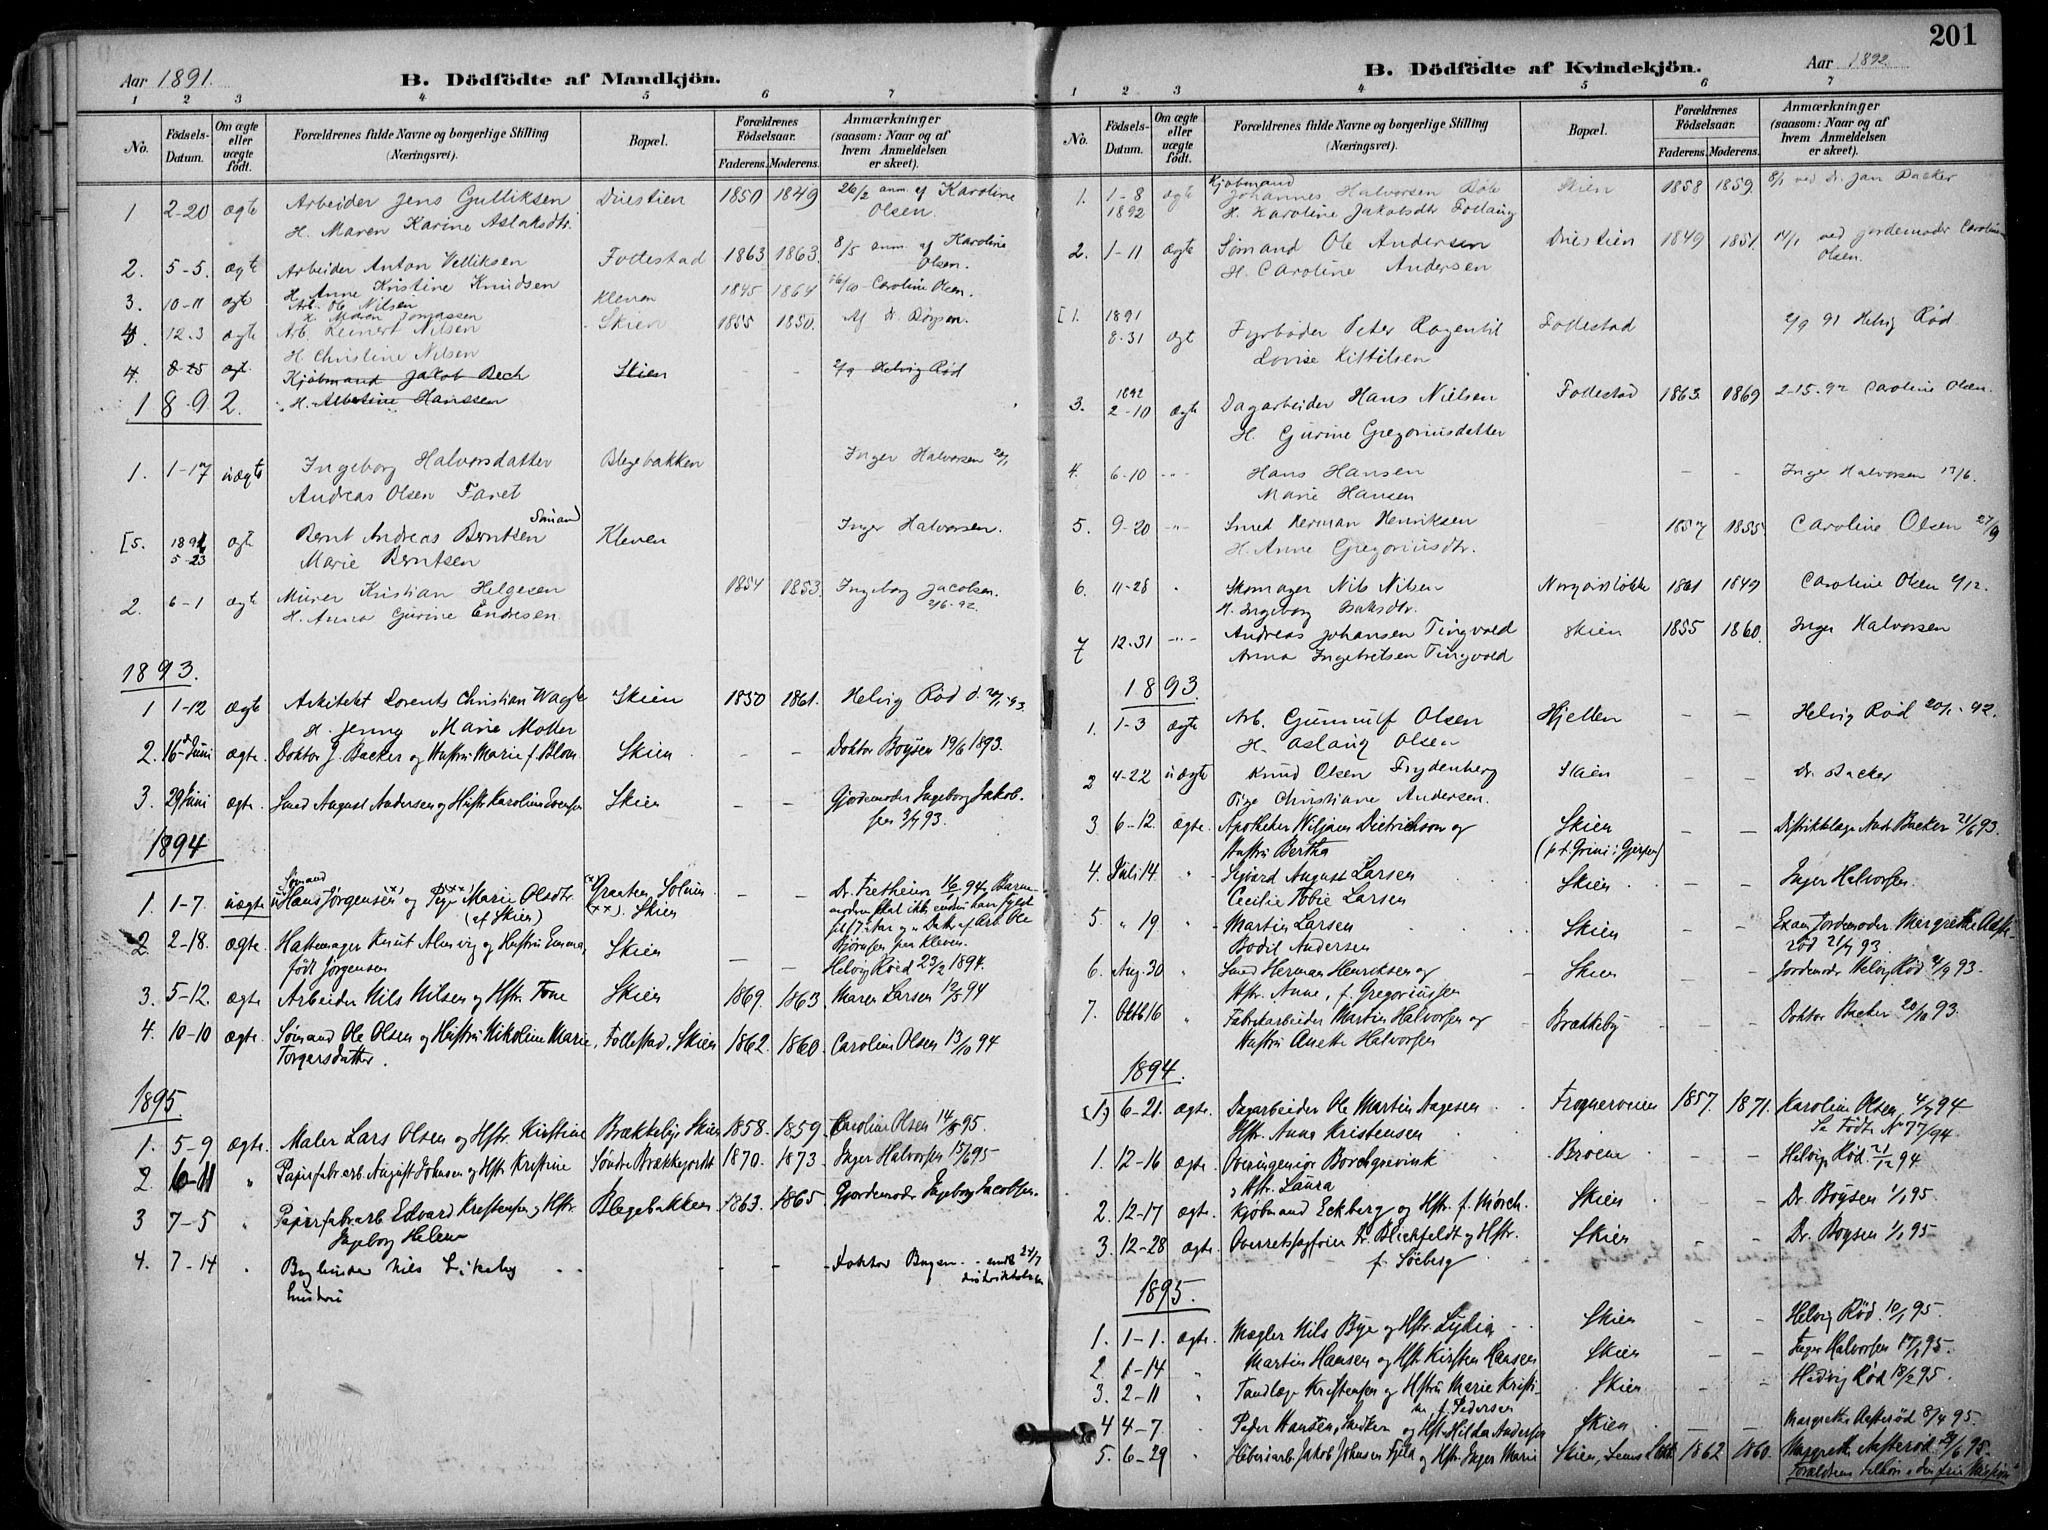 201
Aar 1891.
B. Dödfödte af Mandkjön.
1 2 3 4 5 6 7
No. Födsels-Datum. Om ægte eller uægte födt. Forældrenes fulde Navne og borgerlige Stilling (Næringsvei). Bopæl. Forældrenes Födselsaar. Faderens. Moderens. Anmærkninger (saasom: Naar og af hvem Anmeldelsen er skeet).
1 2-20 ægte Arbeider Jens Gulliksen Duestien 1850 1849 26/2 anm. af Karoline
H. Maren Karine Aslaksdtr. Olsen.
2. 5-5. ægte Arbeider Anton Velliksen Follestad 1863 1863. 8/5 anm. af Karoline
H. Anne Kristine Knudsen Olsen.
3. 10-11 ægt Arb. Ole Nilsen Kleven 1845 1864 Caroline Olsen.
4. 12-3 ægte Arb. Leinert Nilsen Skien 1855 1850. Af Dr.
H. Christine Nilsen
4. 8-25 ægt. Kjöbmand Jakob Bech Skien - - 2/9 Helvig Rød
H. Albertine Hanssen
1892.
1. 1-17 uægte Ingeborg Halvorsdatter Blegebakken Inger Halvorsen
Andreas Olsen Faret
[5. 1891 5-23 ægt Bernt Andreas Berntsen Sømand Kleven Inger Halvorsen.
Marie Berntsen
2. 6-1 ægte Murer Kristian Helgesen 1854 1853. Ingeborg Jacobsen.
H. Anna Gurine Endresen 2/6-92.
1893.
1 1-12 ægte Arkitekt Lorents Christian Skien 1830 1861. Helvig Rød d. 20/1-93.
H. Jenny Marie Moller
2. 16de Juni ægte. Doktor J. Backer og Hustru Marie f. Blom Skien - - Doktor Boysen 19/6 1893.
3. 29 Juni ægte. Smed August Andersen og Hustr Karoline Skien - - Gjordemoder Ingeborg Jakobsen 3/7 93.
1894
1. 1-7. uægte Sømand Hans Jørgensen x) og Pige xx) Marie Olsdtr. x) Graaten, Solum Dr. Fretheim 16/1 94. Barne-
(af Skien) xx). Skien
Bjørnsen fra Kleven.
2. 2-18. ægte. Hattemager Knut Almvig og Hustru Emma, Skien - - Helvig Roed 23/2 1894.
født Jørgensen
3. 5-12. ægte. Arbeider Nils Nilsen og Hstr. Tone Skien 1869. 1863 Maren Larsen 12/5 94
4. 10-10 ægte. Sømand Ole Olsen og Hustru Nikoline Marie Follestad, Skien 1862. 1860. Caroline Olsen 13/10 94
Torgersdatter.
1895.
1. 5-9 ægte. Maler Lars Olsen og Hstr. Kirstine Brækkeby, Skien 1858. 1859. Caroline Olsen 14/5 95.
2. 6-11 " Papirfabr.arb. August Johnsen og Hstr. Kristine Søndre Brækkejordt 1870. 1873. Inger Halvorsen 15/6 95
3 7-5 " Papirfabr.arb Edvard Kristensen og Hstr. Blegebakken 1863. 1865 Gjordemoder Ingeborg Jacobsen.
Ingeborg Helene
4. 7-14 " Bogbinder Nils Likeby - - Doktor Boysen 24/7
hustru distriktslægen
Aar 1892.
B. Dödfödte af Kvindekjön.
1 2 3 4 5 6 7
No. Födsels-Datum. Om ægte eller uægte födt. Forældrenes fulde Navne og borgerlige Stilling (Næringsvei). Bopæl. Forældrenes Födselsaar. Faderens. Moderens. Anmærkninger (saasom: Naar og af hvem Anmeldelsen er skeet).
1. 1-8 1892 ægte Kjöbmand Johannes Halvorsen Bøle Skien 1858 1859. 8/1 ved Dr. Jan Backer
H. Karoline Jakobsdtr Follaug
2. 1-11 ægte Sømand Ole Andersen Duestien 1849 1851. 14/1 ved Jordemoder Caroline
H. Caroline Andersen Olsen.
[1. 1891 8-31 ægt Fyrbøder Peter Rogentil Follestad 2/9 91 Helvig Rød
Lovise Kittilsen
3. 1892 2-10 ægte Dagarbeider Hans Nielsen Follestad 1863. 1869 2-15-92 Caroline Olsen.
H. Gurine Gregoriusdatter
4. 6-10 -"- Hans Hansen - - Inger Halvorsen 13/6.
Marie Hansen
5. 9-20 -"- Smed Herman Henriksen 1857 1855. Caroline Olsen 27/9
H. Anne Gregoriusdtr.
6. 11-28 " Skomager Nils Nilsen 1861 1849 Caroline Olsen 2/12.
H. Ingeborg Isaksdtr.
7 12-31 -"- Andreas Johansen Tingvold Skien 1855 1860. Inger Halvorsen
Anna Ingebretsen Tingvold
1893.
1. 1-3 ægte Arb. Gunnulf Olsen Hjellen - - Helvig Rød 20/1-92.
H. Aslaug Olsen
2 4-22 uægte Knud Olsen Frydenberg Skien - - Dr. Backer
Pige Christiane Andersen.
3 6-12. ægte. Apotheker Wiljam Dietrichson og Skien - - Distriktslæge And. Backer 21/6 93.
Hustru Bertha (p.t. Grini i Gjerpen)
4. Juli 14 " Sigvard August Larsen Skien - - Inger Halvorsen.
Cecilie Tobie Larsen
5. " 19 " Martin Larsen Skien - - Exam. Jordemoder Margrethe Aafte-
Bodil Andersen rød 21/7 93.
6. Aug. 30 " Smed Herman Henriksen og Skien - - Jordemoder Helvig Rød 4/9 93.
Hstr. Anne, f. Gregoriussen
7. Oktb 16 " Fabrikarbeider Martin Halvorsen og Brækkeby - - Doktor Backer 20/10 93.
Hustru Anette Halvorsen
1894.
(1.) 6-21. ægte. Dagarbeider Ole Martin Aagesen Frognerveien 1857. 1871. Karoline Olsen, 4/7 94
Hstr. Anna Kristensen Se Fødte No 77/94.
1. 12-16 ægte. Overingeniør Borchgrevink Broene - - Helvig Rød. 21/12 94
og Hstr. Laura
2. 12-17 ægte. Kjøbmand Eckberg og Hstr. f. Mörch. Skien - - Dr. Boysen 1/1 95.
3. 12-28 ægte. Overretssagfører Fr. Blichfeldt og Hstr. Skien - - Dr. Boysen 1/1 95
f. Söeberg
1895.
1. 1-1. ægte. Mægler Nils Bye og Hstr. Lydia Skien - - Helvig Rød. 10/1 95.
2. 1-14 " Martin Hansen og Hstr Kirsten Hansen Skien - - Inger Halvorsen 17/1 95.
3. 2-11 " Tandlæge Kristensen og Hstru Marie Kristi- Skien - - Hedvig Rød 18/2 95.
ne, f. Pedersen
4 4-7. " Peder Hansen, Snedker og Hstr. Hilda Andersen Skien - - Margrethe Aafterød 8/4 95.
5. 6-29 " Støberiarb. Jakob Johnsen Fjeld og Hstr. Inger Marie Skien, 1862 1860. Margrethe Aafterød 29/6 95.
Forældrene tilhöre "den frie Mission"